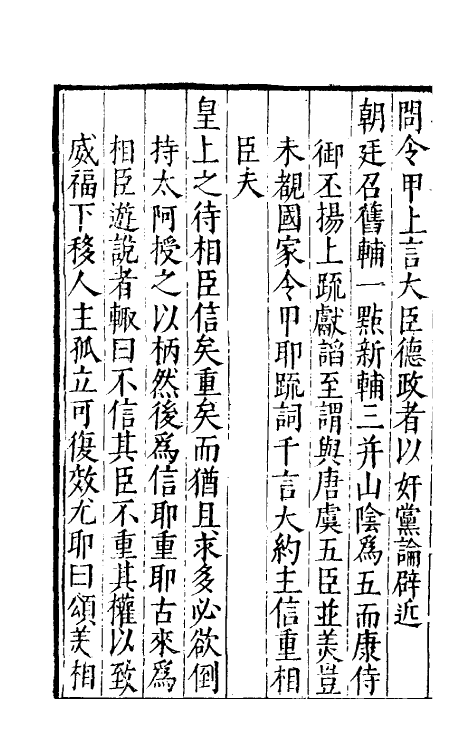 問令甲上言大臣德政者以奸黨論辟近
朝廷召舊輔一點新輔三并山陰爲五而康侍
御丕揚上疏獻謟至謂與唐虞五臣並羙豈
未覩國家令甲耶疏詞千言大約主信重相
臣夫
皇上之待相臣信矣重矣而猶且求多必欲倒
持太阿授之以柄然後爲信耶重耶古來爲
相臣遊說者輒曰不信其臣不重其權以致
威福下移人主孤立可復效尤耶曰頌羙相